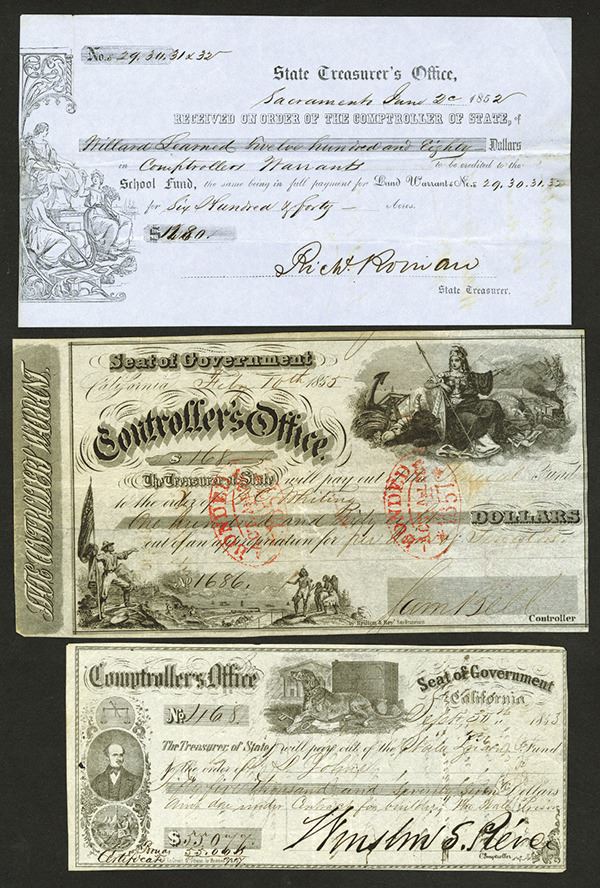 No. 29.30.31 & 32
State Treasurer's Office,
Sacramento June 2d 1852
RECEIVED ON ORDER OF THE COMPTROLLER OF STATE, of
Willard Learned Twelve hundred and Eighty Dollars
in Comptrollers Warrants to be credited to the
School Fund, the same being in full payment for Land Warrants No.s 29.30.31.32
for Six Hundred & forty — Acres.
$1280.
Richd. Roman
State Treasurer.
STATE CONTROLLER'S WARRANT.
Seat of Government
California Feb 10th 1855
Controller's Office.
$ 168
The Treasurer of State will pay out of the General Fund
to the order of Whiting
One hundred and Sixty DOLLARS
out of an appropriation for per
FUNDED
FUNDED
No 1686.
Sam Bell
Controller
Comptroller's Office
Seat of Government
California
No. 468.
Sept. 30th 1853
The Treasurer of State will pay out of the State Prison Fund
to the order of
Fifty five thousand and seventy seven Dollars
and due under Contract for building the State Prison
$55077
Certificate
Winslow S. Pierce
Comptroller